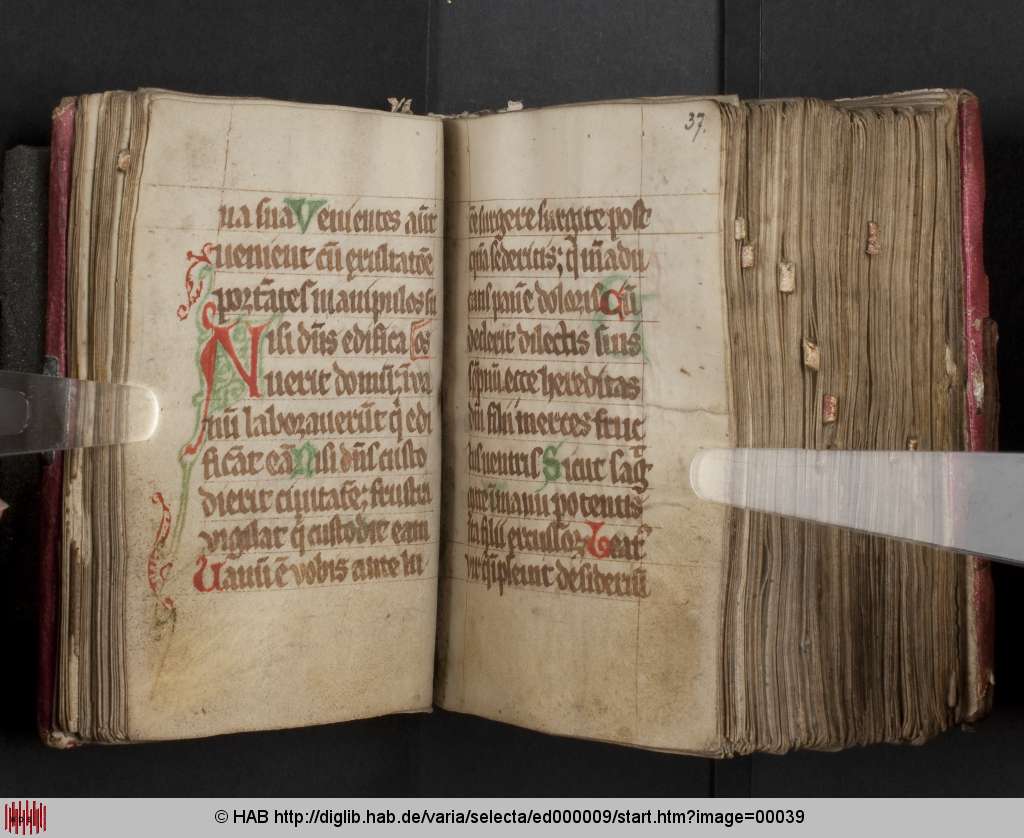 na sua Venientes aūt
uenient cū exultatōe
portātes manipulos su
Nisi dn̄s edifica os
uerit domū; ī va
nū laborauerūt q̄ edi
ficāt eā Nisi dn̄s custo
dierit ciuitatē; frustra
vigilat q̄ custodit eam
Uanū ē vobis ante lu
37.
cē surgere surgite post
quā sederitis; q̄ mādu
catis panē doloris Cū
dederit dilectis suis
sōpnū ecce hereditas
dn̄i filii merces fruc
tus uentris Sicut sag
itte ī manu potentis
ita filii excussoꝝ Beat
vir q̄ īpleuit desideriū
© HAB http://diglib.hab.de/varia/selecta/ed000009/start.htm?image=00039